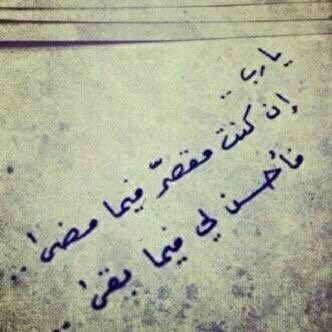 يارب ..
إن كنت مقصرّ فيما مضى !
فأحسن لي فيما بقى !